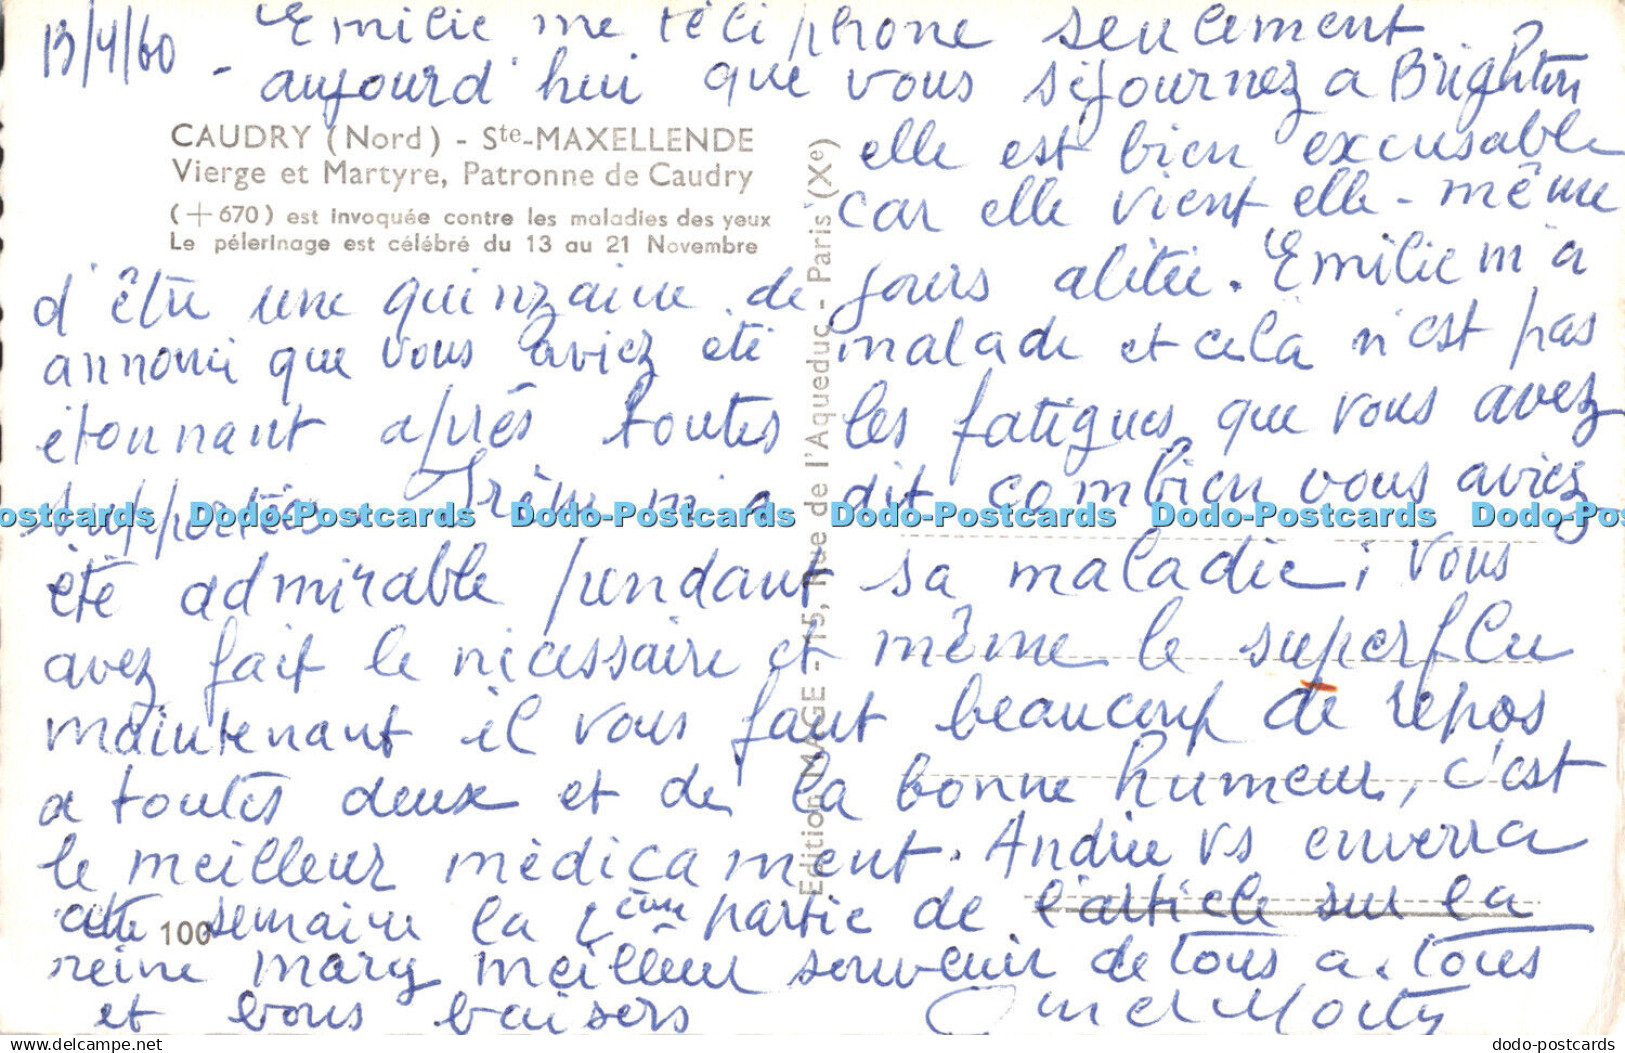 13/4/60 Emilie me téléphone seulement
- aujourd'hui que vous séjournez a Brighton
CAUDRY (Nord) - Ste-MAXELLENDE
Vierge et Martyre, Patronne de Caudry
(+670) est invoquée contre les maladies des yeux
Le pélerinage est célébré du 13 au 21 Novembre
elle est bien excusable
car elle vient elle-même
d'être une quinzaine de jours alitée. Emilie m'a
annoncé que vous aviez été malade et cela n'est pas
étonnant après toutes les fatigues que vous avez
supportées. Irène m'a dit combien vous aviez
été admirable pendant sa maladie; vous
avez fait le nécessaire et même le superflu
maintenant il vous faut beaucoup de repos
a toutes deux et de la bonne humeur, c'est
le meilleur médicament. Andrée vs enverra
cette semaine la 2ème partie de l'article sur la
reine mary meilleur souvenir de tous a tous
et bons baisers
100
Edition MAGE - 15, Rue de l'Aqueduc - Paris (Xe)
Dodo-Postcards Dodo-Postcards Dodo-Postcards Dodo-Postcards
dodo-postcards